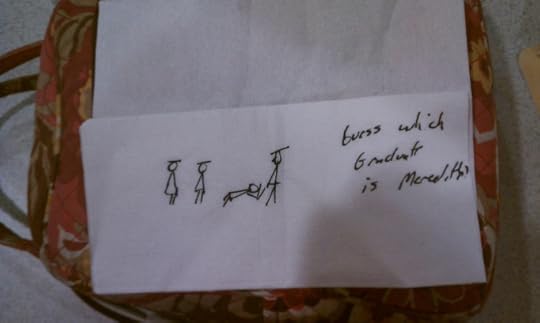 Guess which
Graduate
is Meredith?